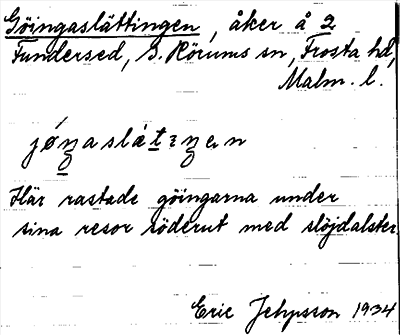 Göingaslättingen, åker å 2
Fundersed, S. Rörums sn, Frosta hd,
Malm. l.
jöŋaslätıŋen
Här rastade göingarna under
sina resor söderut med slöjdalster.
Eric 1934